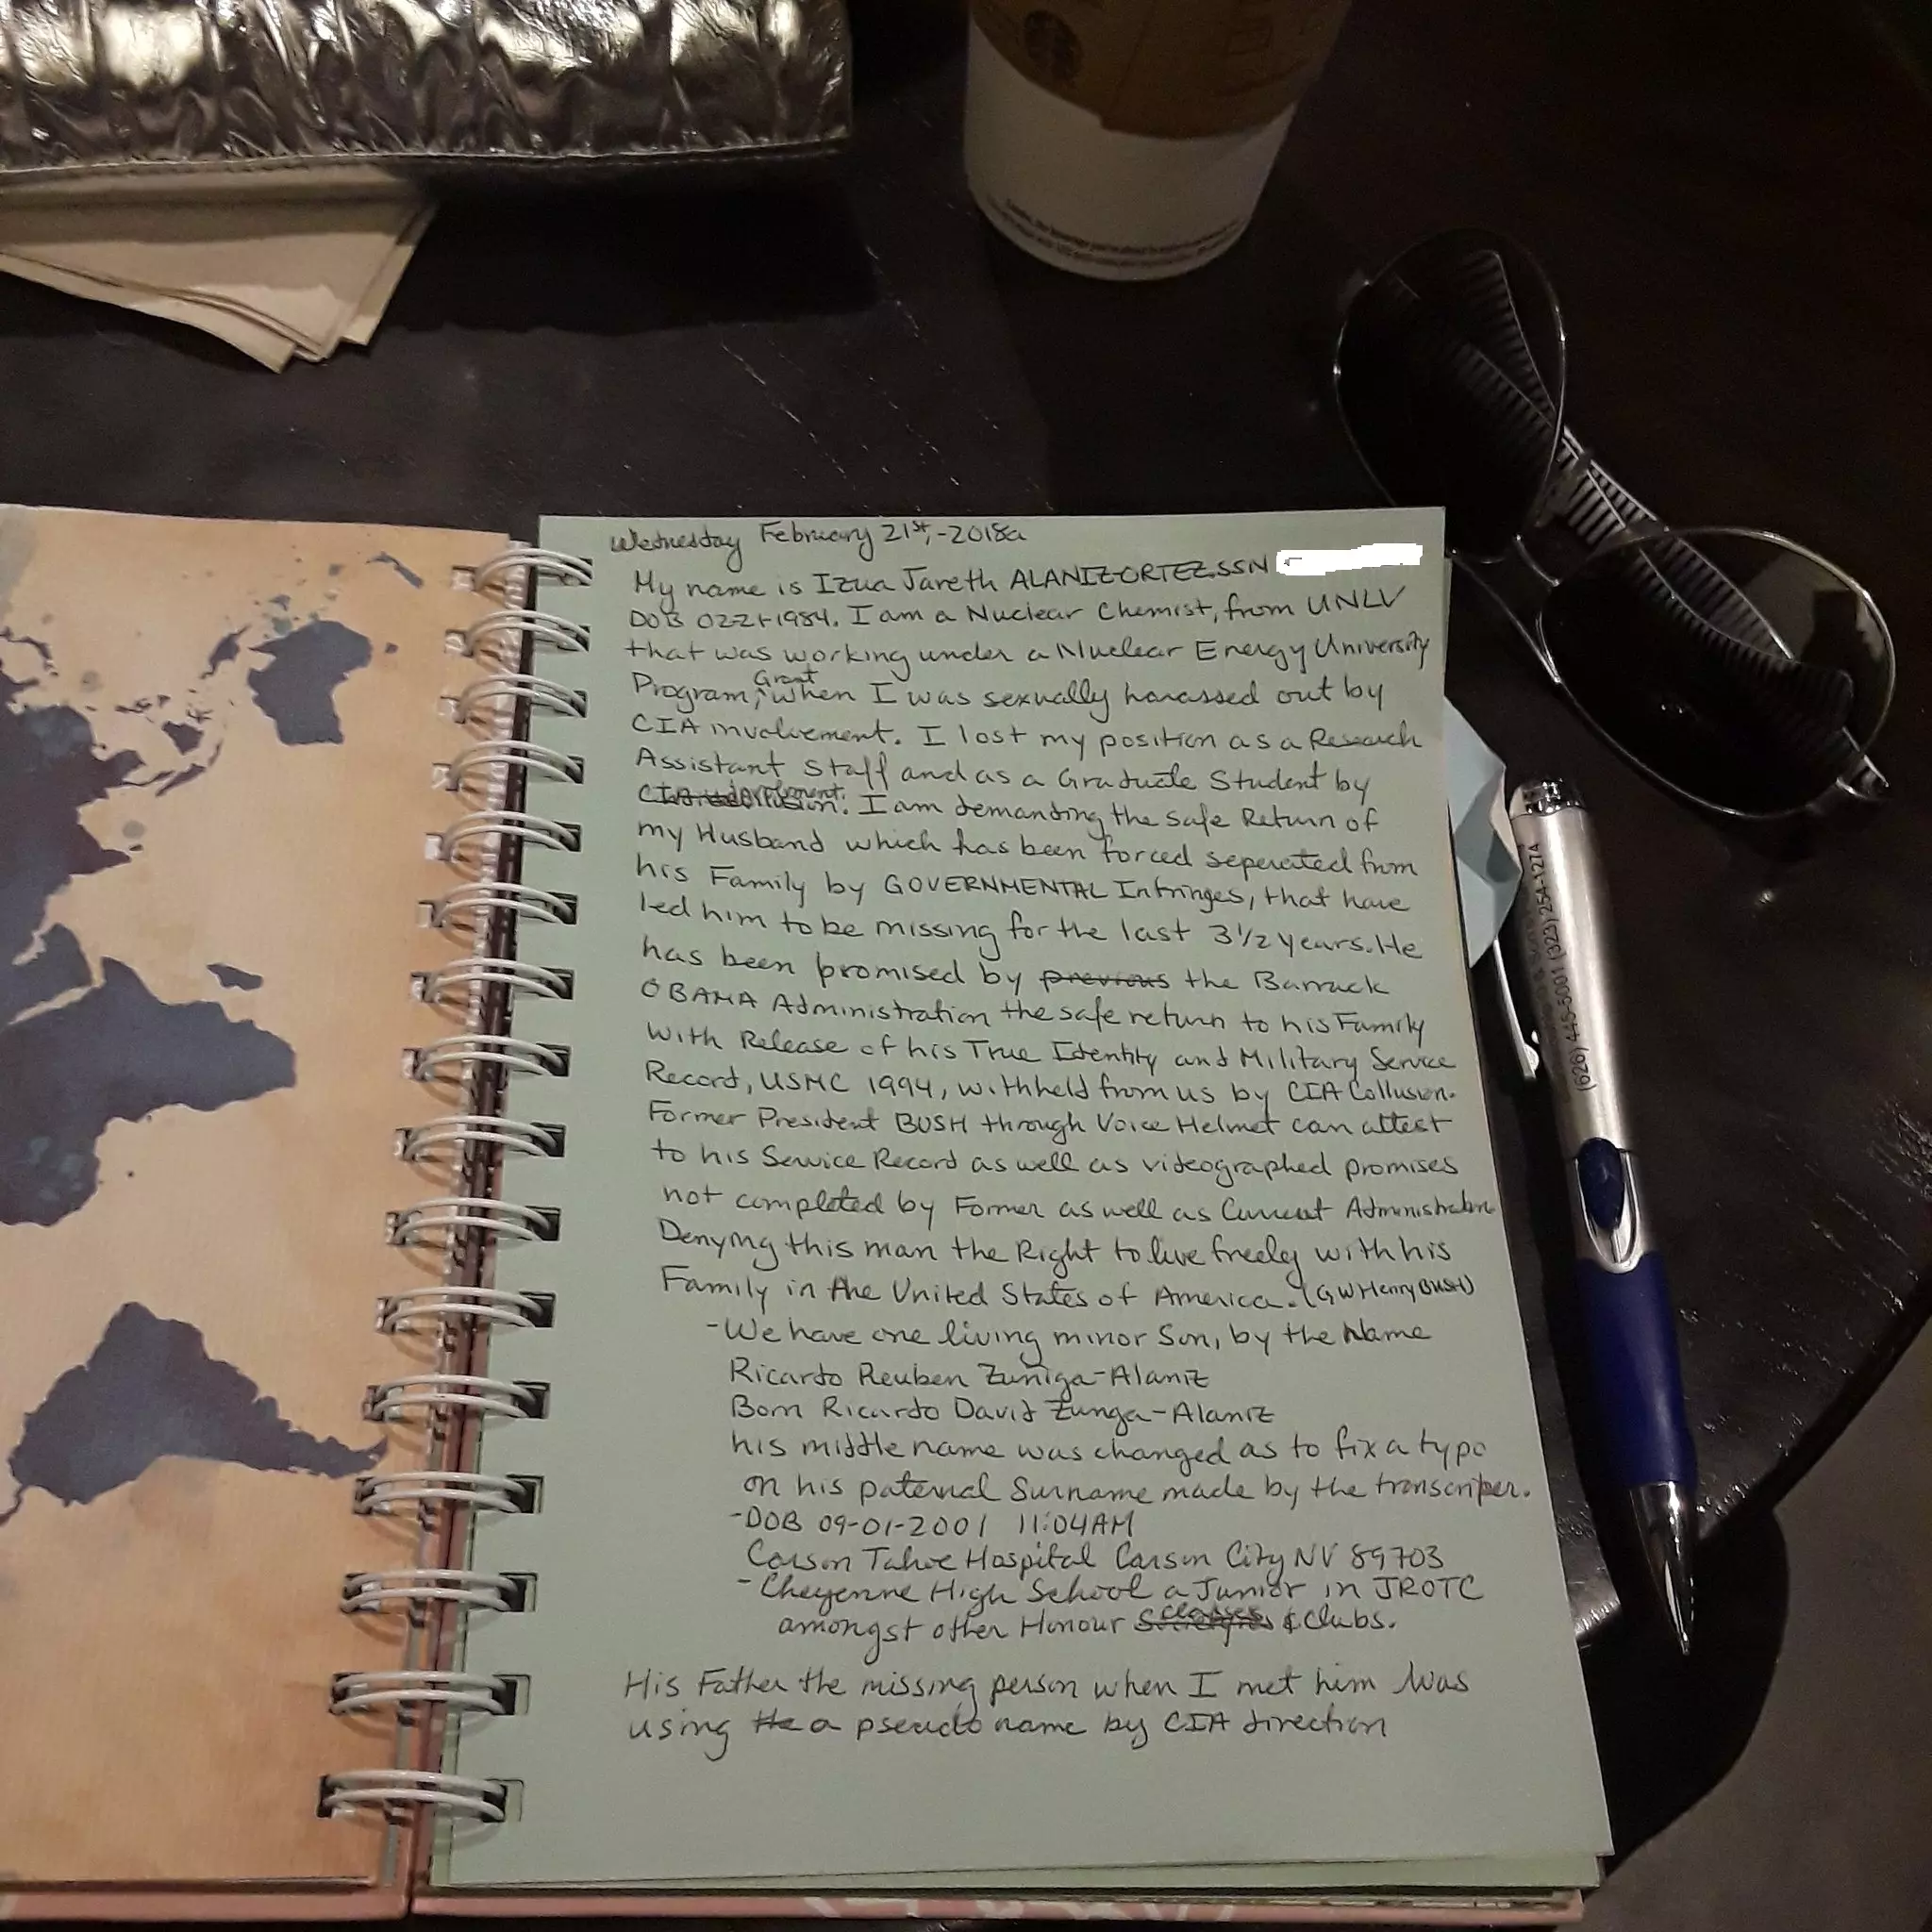 Wednesday February 21st, -2018a
My name is Izua Jareth ALANIZ-ORTEZ. SSN
DOB 02-21-1984. I am a Nuclear Chemist, from UNLV
that was working under a Nuclear Energy University
Program, Grant when I was sexually harassed out by
CIA involvement. I lost my position as a Research
Assistant Staff and as a Graduate Student by
CIA involvement. I am demanding the safe Return of
my Husband which has been forced seperated from
his Family by GOVERNMENTAL Infringes, that have
led him to be missing for the last 3 1/2 years. He
has been promised by previous the Barrack
OBAMA Administration the safe return to his Family
with Release of his True Identity and Military Service
Record, USMC 1994, withheld from us by CIA Collusion.
Former President BUSH through Voice Helmet can attest
to his Service Record as well as videographed promises
not completed by Former as well as Current Administration
Denying this man the Right to live freely with his
Family in the United States of America. (GW Henry BUSH)
- We have one living minor Son, by the Name
Ricardo Reuben Zuniga-Alaniz
Born Ricardo David Zunga-Alaniz
his middle name was changed as to fix a typo
on his paternal Surname made by the transcriper.
- DOB 09-01-2001 11:04AM
Carson Tahoe Hospital Carson City NV 89703
- Cheyenne High School a Junior in JROTC
amongst other Honour classes & clubs.
His Father the missing person when I met him was
using the a pseudo name by CIA direction
(626) 445-5001 (323) 254-1274